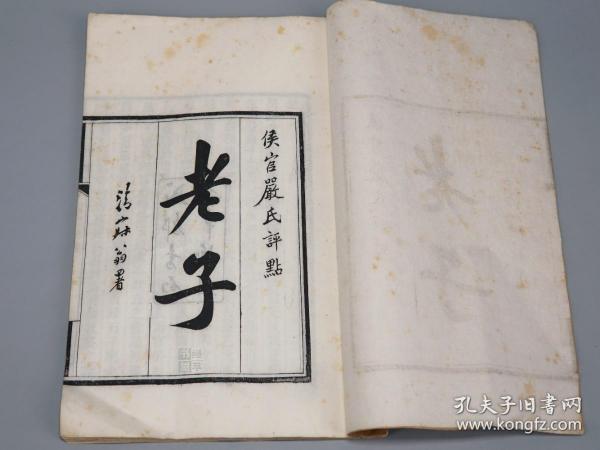 侯官嚴氏評點
老子
翁署
孔夫子旧书网
www.kongfz.com